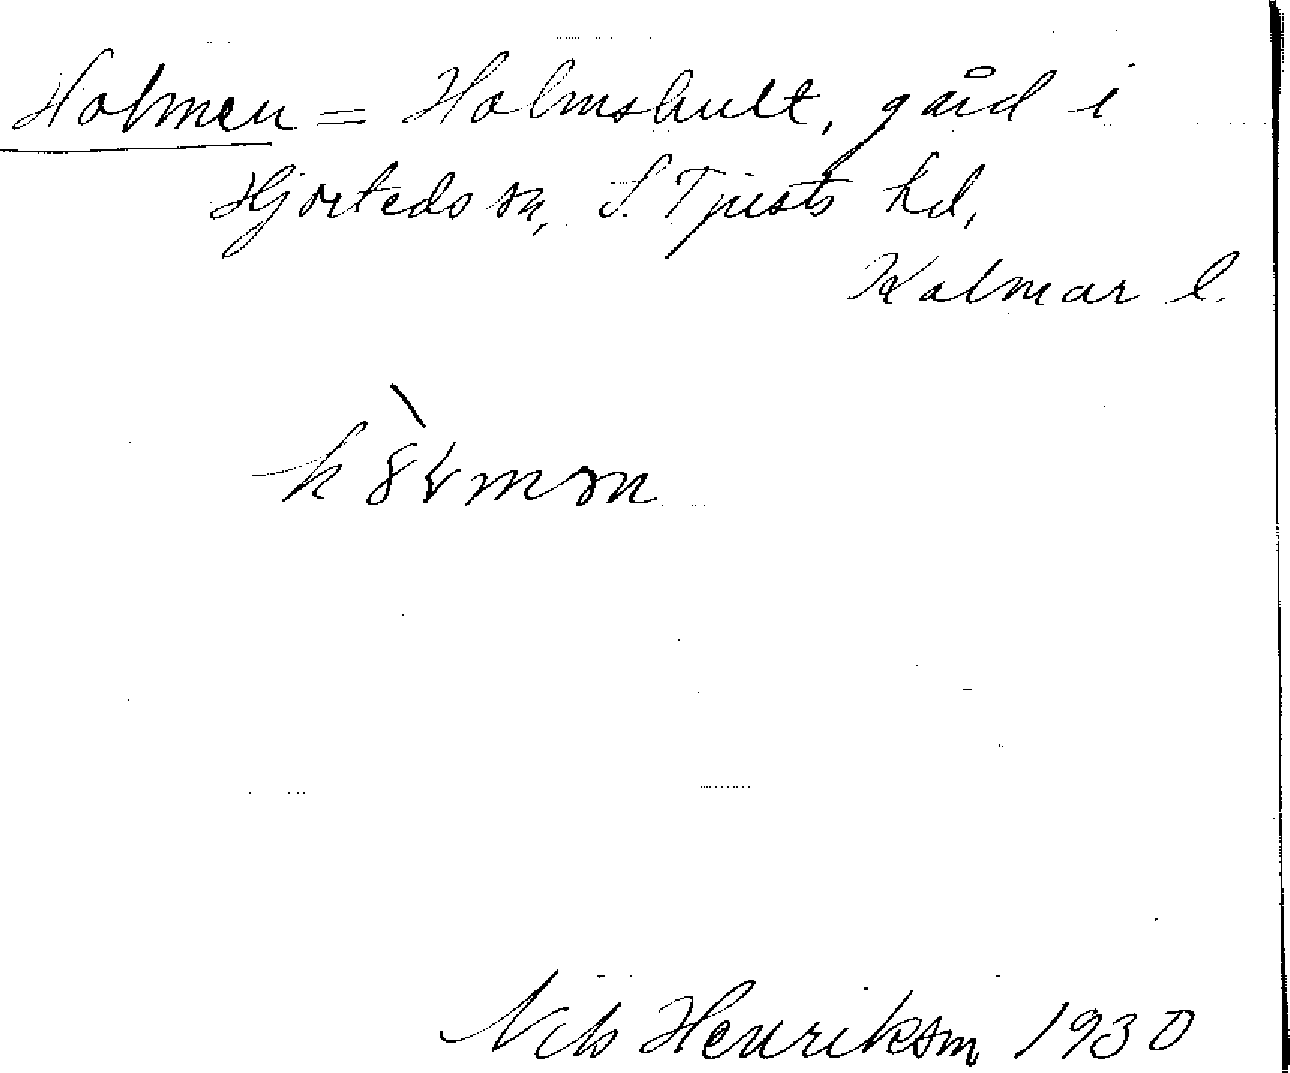 Holmen = Holmshult, gård i
Hjorteds sn, S. Tjusts hd,
Kalmar l.
Nils Henriksson 1930